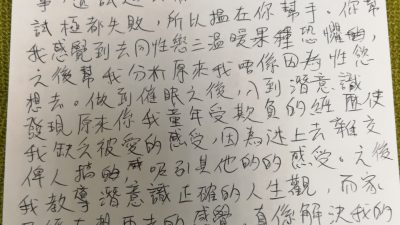 試極都失敗,所以搵在你幫手。你幫
我感覺到去同性戀三溫暖果種恐懼的,
之後幫我分析原來我唔係因為性慾
想去。做到催眠之後,入到潛意識
發現原來係我童年受欺負的經歷使
我缺乏被愛的感受,因為迷上去雜交
俾人搞的感吸引其他的的感受。之後
我教導潛意識正確的人生觀,而家
的感覺,真係解決我的